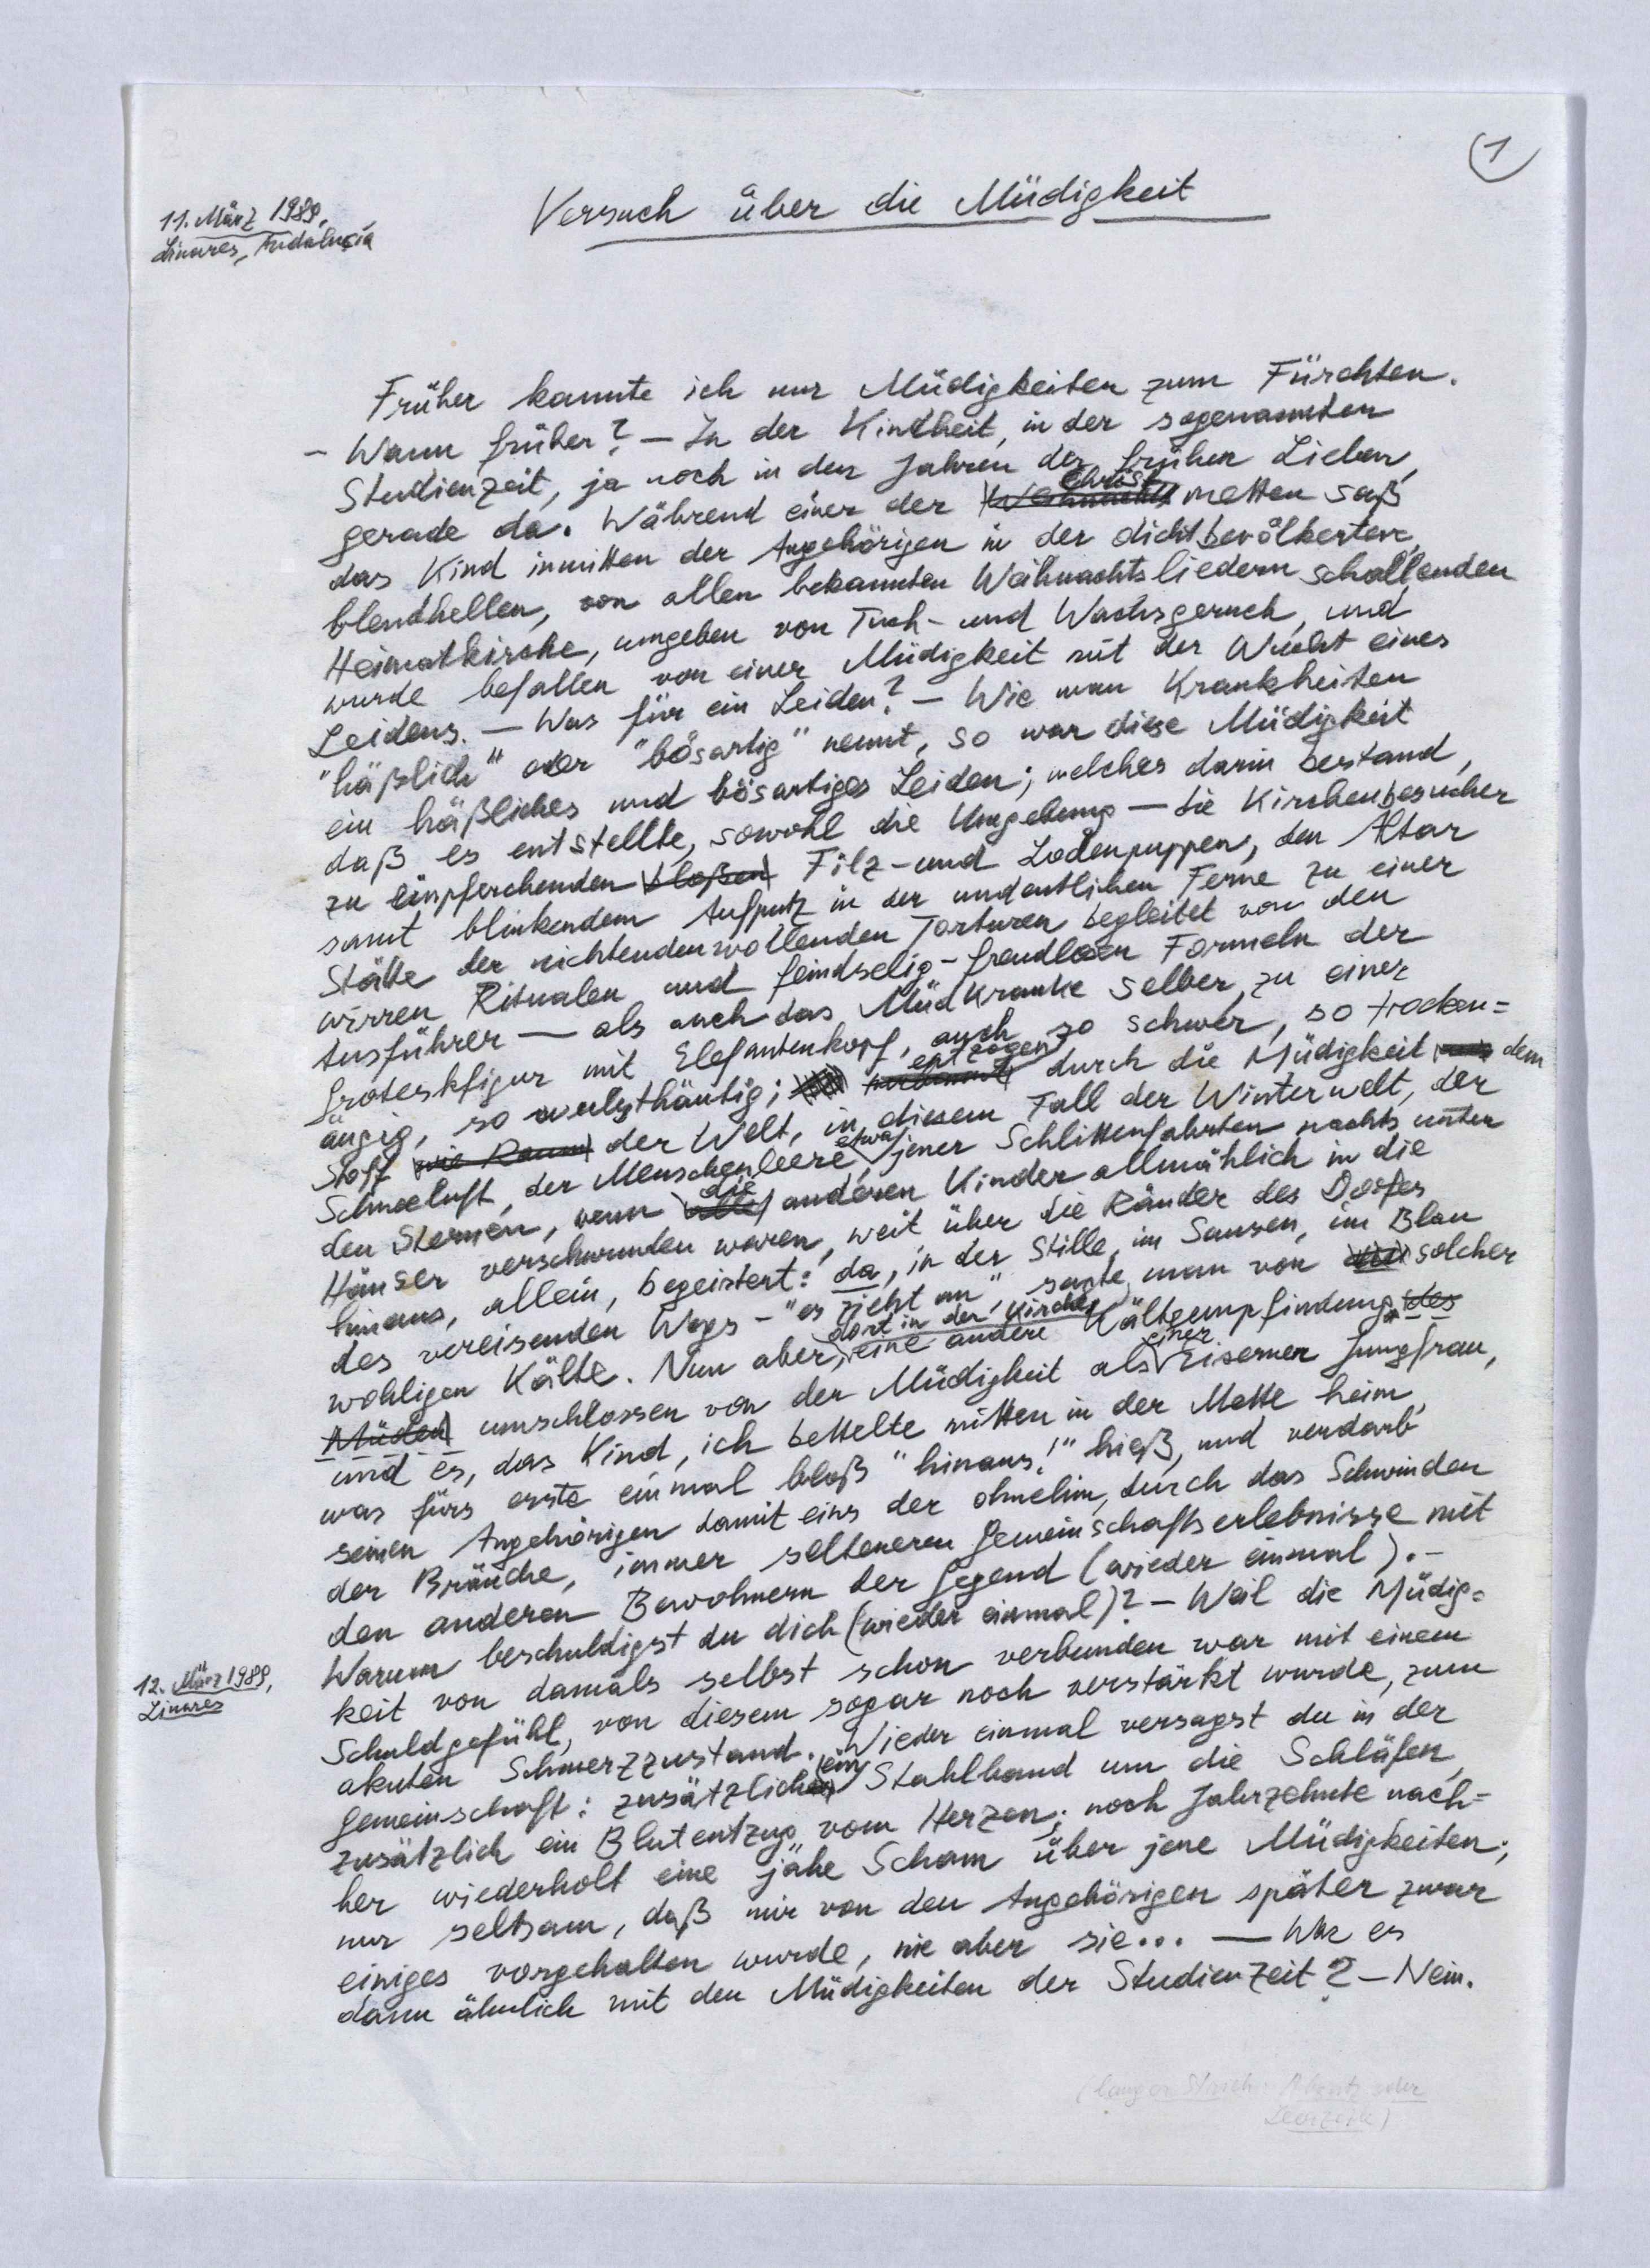 1
11. März 1989,
Linares, Andalucía
Versuch über die Müdigkeit
Früher kannte ich nur Müdigkeiten zum Fürchten.
– Wann früher? – In der Kindheit, in der sogenannten
Studienzeit, ja noch in den Jahren der frühen Lieben,
gerade da. Während einer der Christmetten saß
das Kind inmitten der Angehörigen in der dichtbevölkerten,
blendhellen, von allen bekannten Weihnachtsliedern schallenden
Heimatkirche, umgeben von Tuch- und Wachsgeruch, und
wurde befallen von einer Müdigkeit mit der Wucht eines
Leidens. – Was für ein Leiden? – Wie man Krankheiten
"häßlich" oder "bösartig" nennt, so war diese Müdigkeit
ein häßliches und bösartiges Leiden; welches darin bestand,
daß es entstellte, sowohl die Umgebung – die Kirchenbesucher
zu einpferchenden bloßen Filz- und Lodenpuppen, den Altar
samt blinkendem Aufputz in der undeutlichen Ferne zu einer
Stätte der nichtendenwollenden Torturen begleitet von den
wirren Ritualen und feindselig-freudlosen Formeln der
Ausführer – als auch das Müdkranke selber, zu einer
Groteskfigur mit Elefantenkopf, auch so schwer, so trocken=
äugig, so wulsthäutig; entzogen durch die Müdigkeit dem
Stoff wie Raum der Welt, in diesem Fall der Winterwelt, der
Schneeluft, der Menschenleere, etwa jener Schlittenfahrten nachts unter
den Sternen, wenn alle die anderen Kinder allmählich in die
Häuser verschwunden waren, weit über die Ränder des Dorfes
hinaus, allein, begeistert: da, in der Stille, im Sausen, im Blau
des vereisenden Wegs – "es zieht an", sagte man von solcher
wohligen Kälte. Nun aber, dort in der Kirche, eine andere Kälteempfindung des
Müden umschlossen von der Müdigkeit als einer Eiserner Jungfrau,
und es, das Kind, ich bettelte mitten in der Mette heim,
was fürs erste einmal bloß "hinaus!" hieß, und verdarb
seinen Angehörigen damit eins der ohnehin, durch das Schwinden
der Bräuche, immer selteneren Gemeinschaftserlebnisse mit
den anderen Bewohnern der Gegend (wieder einmal). –
Warum beschuldigst du dich (wieder einmal)? – Weil die Müdig=
12. März 1989,
Linares
keit von damals selbst schon verbunden war mit einem
Schuldgefühl, von diesem sogar noch verstärkt wurde, zum
akuten Schmerzzustand. Wieder einmal versagst du in der
Gemeinschaft: zusätzlich ein Stahlband um die Schläfen,
zusätzlich ein Blutentzug vom Herzen; noch Jahrzehnte nach=
her wiederholt eine jähe Scham über jene Müdigkeiten;
nur seltsam, daß mir von den Angehörigen später zwar
einiges vorgehalten wurde, nie aber sie... – War es
dann ähnlich mit den Müdigkeiten der Studienzeit? – Nein.